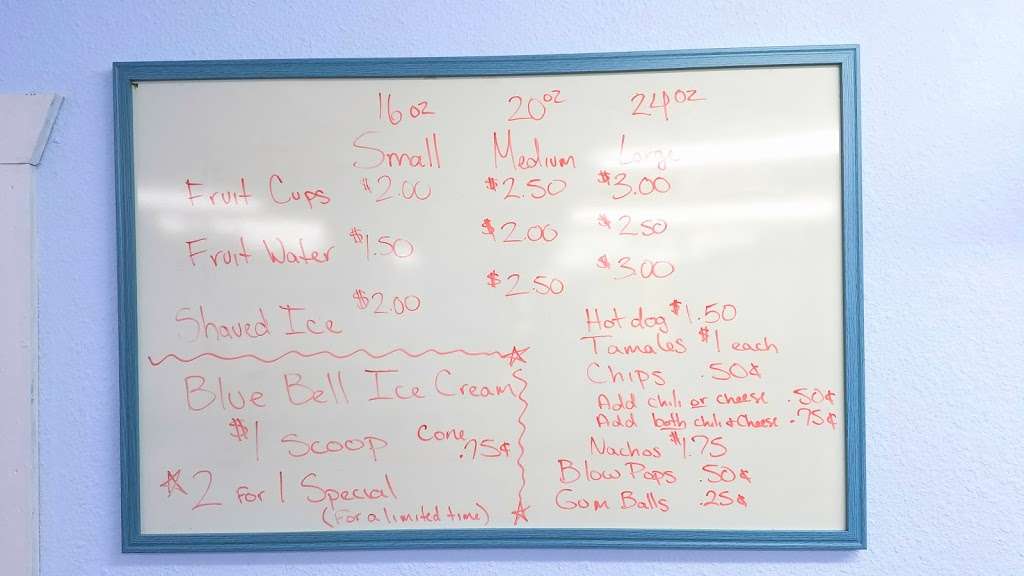 16 oz 20 oz 24 oz
Small Medium Large
Fruit Cups $2.00 $2.50 $3.00
Fruit Water $1.50 $2.00 $2.50
Shaved Ice $2.00 $2.50 $3.00
Blue Bell Ice Cream
$1 Scoop Cone .75¢
2 for 1 Special
(For a limited time)
Hot dog $1.50
Tamales $1 each
Chips .50¢
Add chili or cheese .50¢
Add both chili & Cheese .75¢
Nachos $1.75
Blow Pops .50¢
Gum Balls .25¢